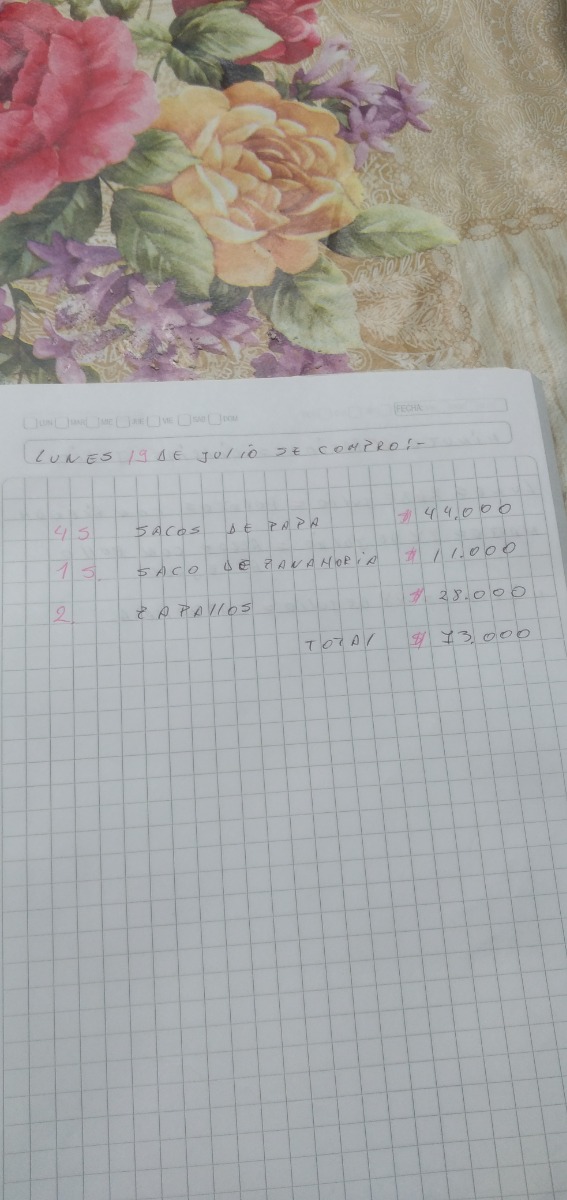 LUN MAR MIE JUE VIE SAB DOM
FECHA
LUNES 19 DE JULIO SE COMPRO:-
4 S SACOS DE PAPA $ 44.000
1 S. SACO DE ZANAHORIA $ 11.000
2. ZAPALLOS $ 28.000
TOTAL $ 73.000